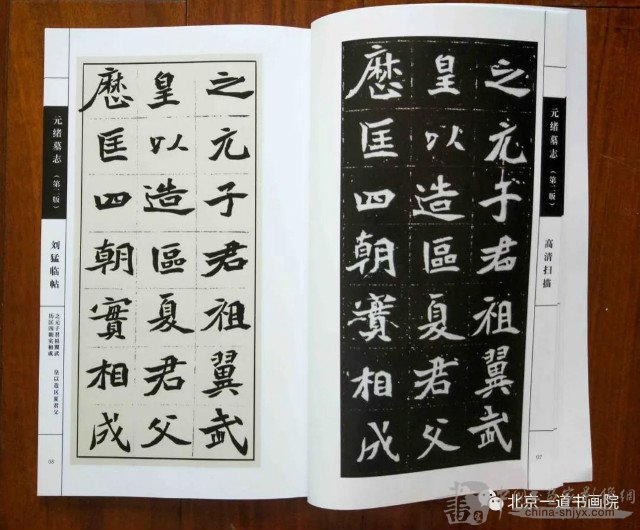 之元子君祖翼武
皇以造區夏君父
歷匡四朝實相成
元绪墓志（第二版）
高清扫描
07
之元子君祖翼武
皇以造區夏君父
歷匡四朝實相成
元绪墓志（第二版）
刘猛临帖
之元子君祖翼武 皇以造区夏君父
历匡四朝实相成
08
北京一道书画院
www.china-shjyx.com